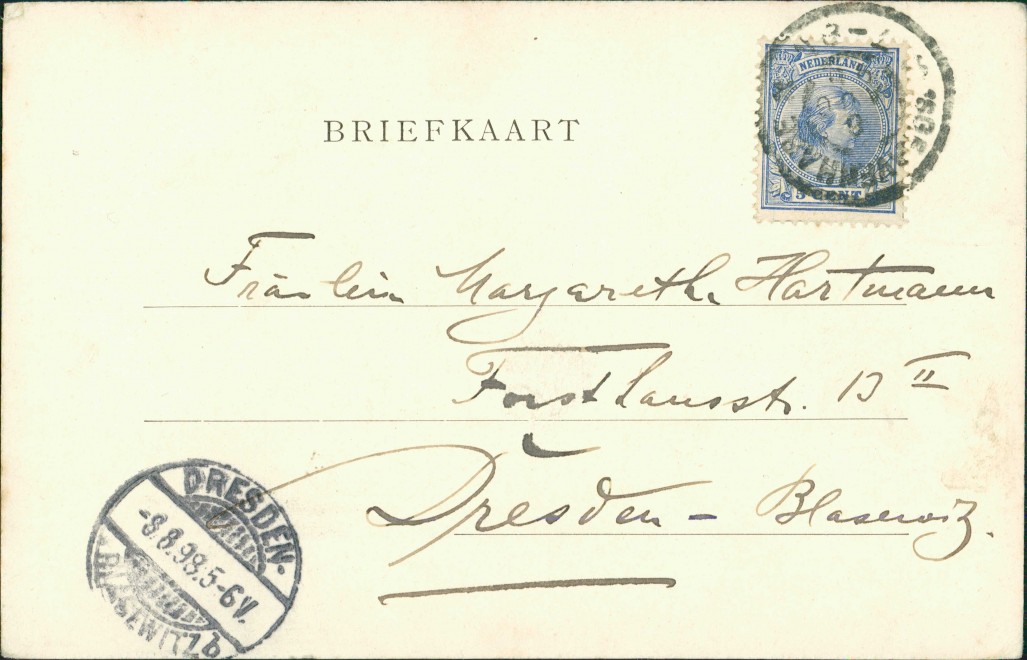 BRIEFKAART
NEDERLAND
5 CENT
Fräulein Margarethe Hartmann
Forsthausstr. 13 II
Dresden - Blasewitz.
DRESDEN-
-8.8.98.5-6V.
BLASEWITZ b